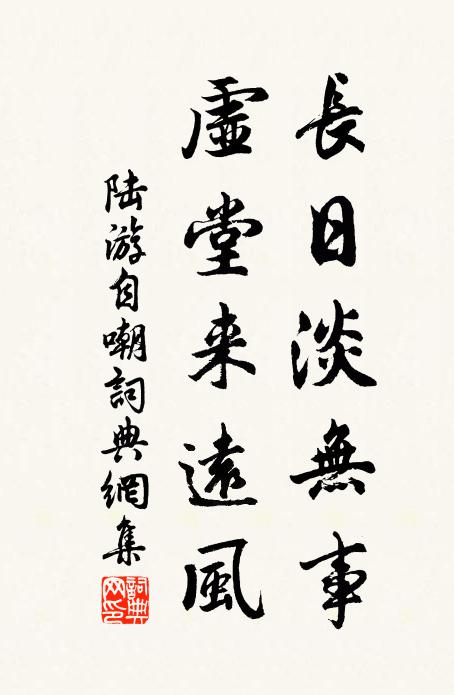 長日淡無事
虛堂来遠風
陆游自嘲詞典網集
詞典網印